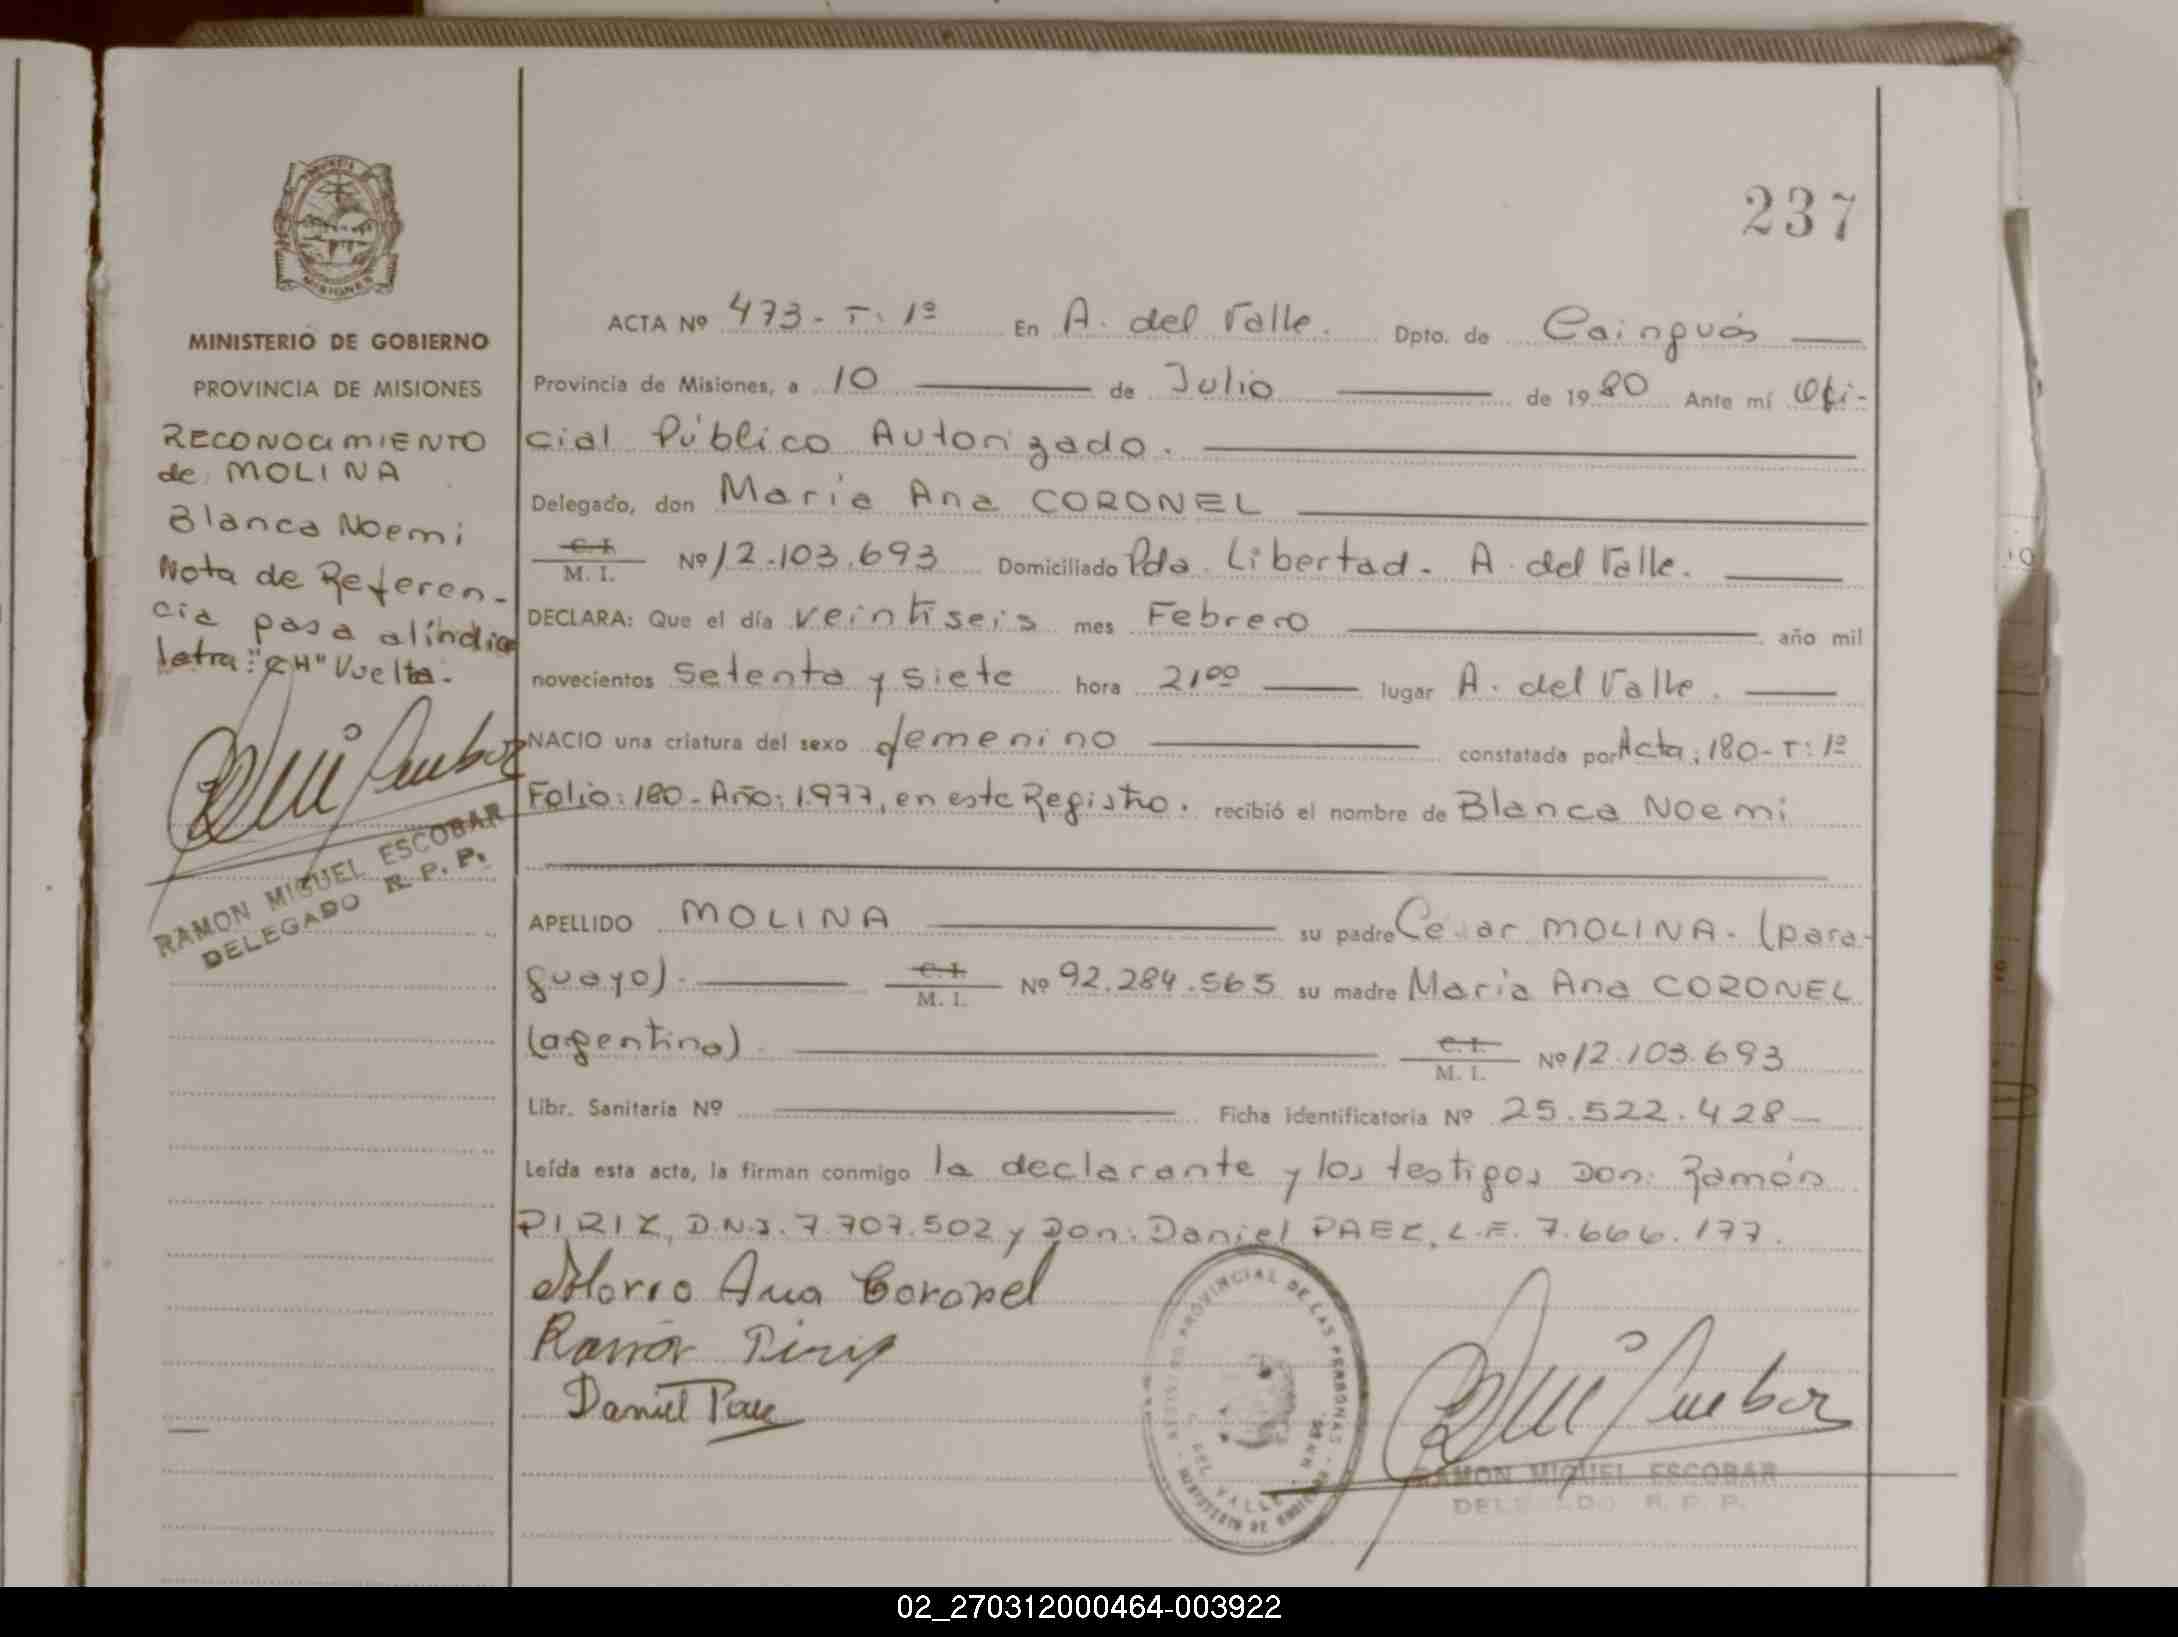 237
MINISTERIO DE GOBIERNO
PROVINCIA DE MISIONES
RECONOCIMIENTO
de MOLINA
Blanca Noemi
Nota de Referen-
cia pasa al índice
letra: "CH" Vuelta.
RAMON MIGUEL ESCOBAR
DELEGADO R. P. P.
ACTA Nº 473- T: 1º En A. del Valle. Dpto. de Cainguás
Provincia de Misiones, a 10 de Julio de 1980 Ante mí Ofi-
cial Público Autorizado.
Delegado, don María Ana CORONEL
C. I. M. I. Nº 12.103.693 Domiciliado Pda. Libertad. A. del Valle.
DECLARA: Que el día veintiseis mes Febrero año mil
novecientos setenta y siete hora 21ºº lugar A. del Valle.
NACIO una criatura del sexo femenino constatada por Acta: 180- T: 1º
Folio: 180- Año: 1.977, en este Registro. recibió el nombre de Blanca Noemi
APELLIDO MOLINA su padre Cesar MOLINA. (para-
guayo). C. I. M. I. Nº 92.284.565 su madre María Ana CORONEL
(argentina). C. I. M. I. Nº 12.103.693
Libr. Sanitaria Nº Ficha identificatoria Nº 25.522.428
Leída esta acta, la firman conmigo la declarante y los testigos Don: Ramón
PIRIZ, D.N.I. 7.707.502 y Don: Daniel PAEZ, L.E. 7.666.177.
María Ana Coronel
Ramón Piriz
Daniel Paez
REGISTRO PROVINCIAL DE LAS PERSONAS
DEL VALLE
MINISTERIO DE GOBIERNO
RAMON MIGUEL ESCOBAR
DELEGADO R. P. P.
02_270312000464-003922